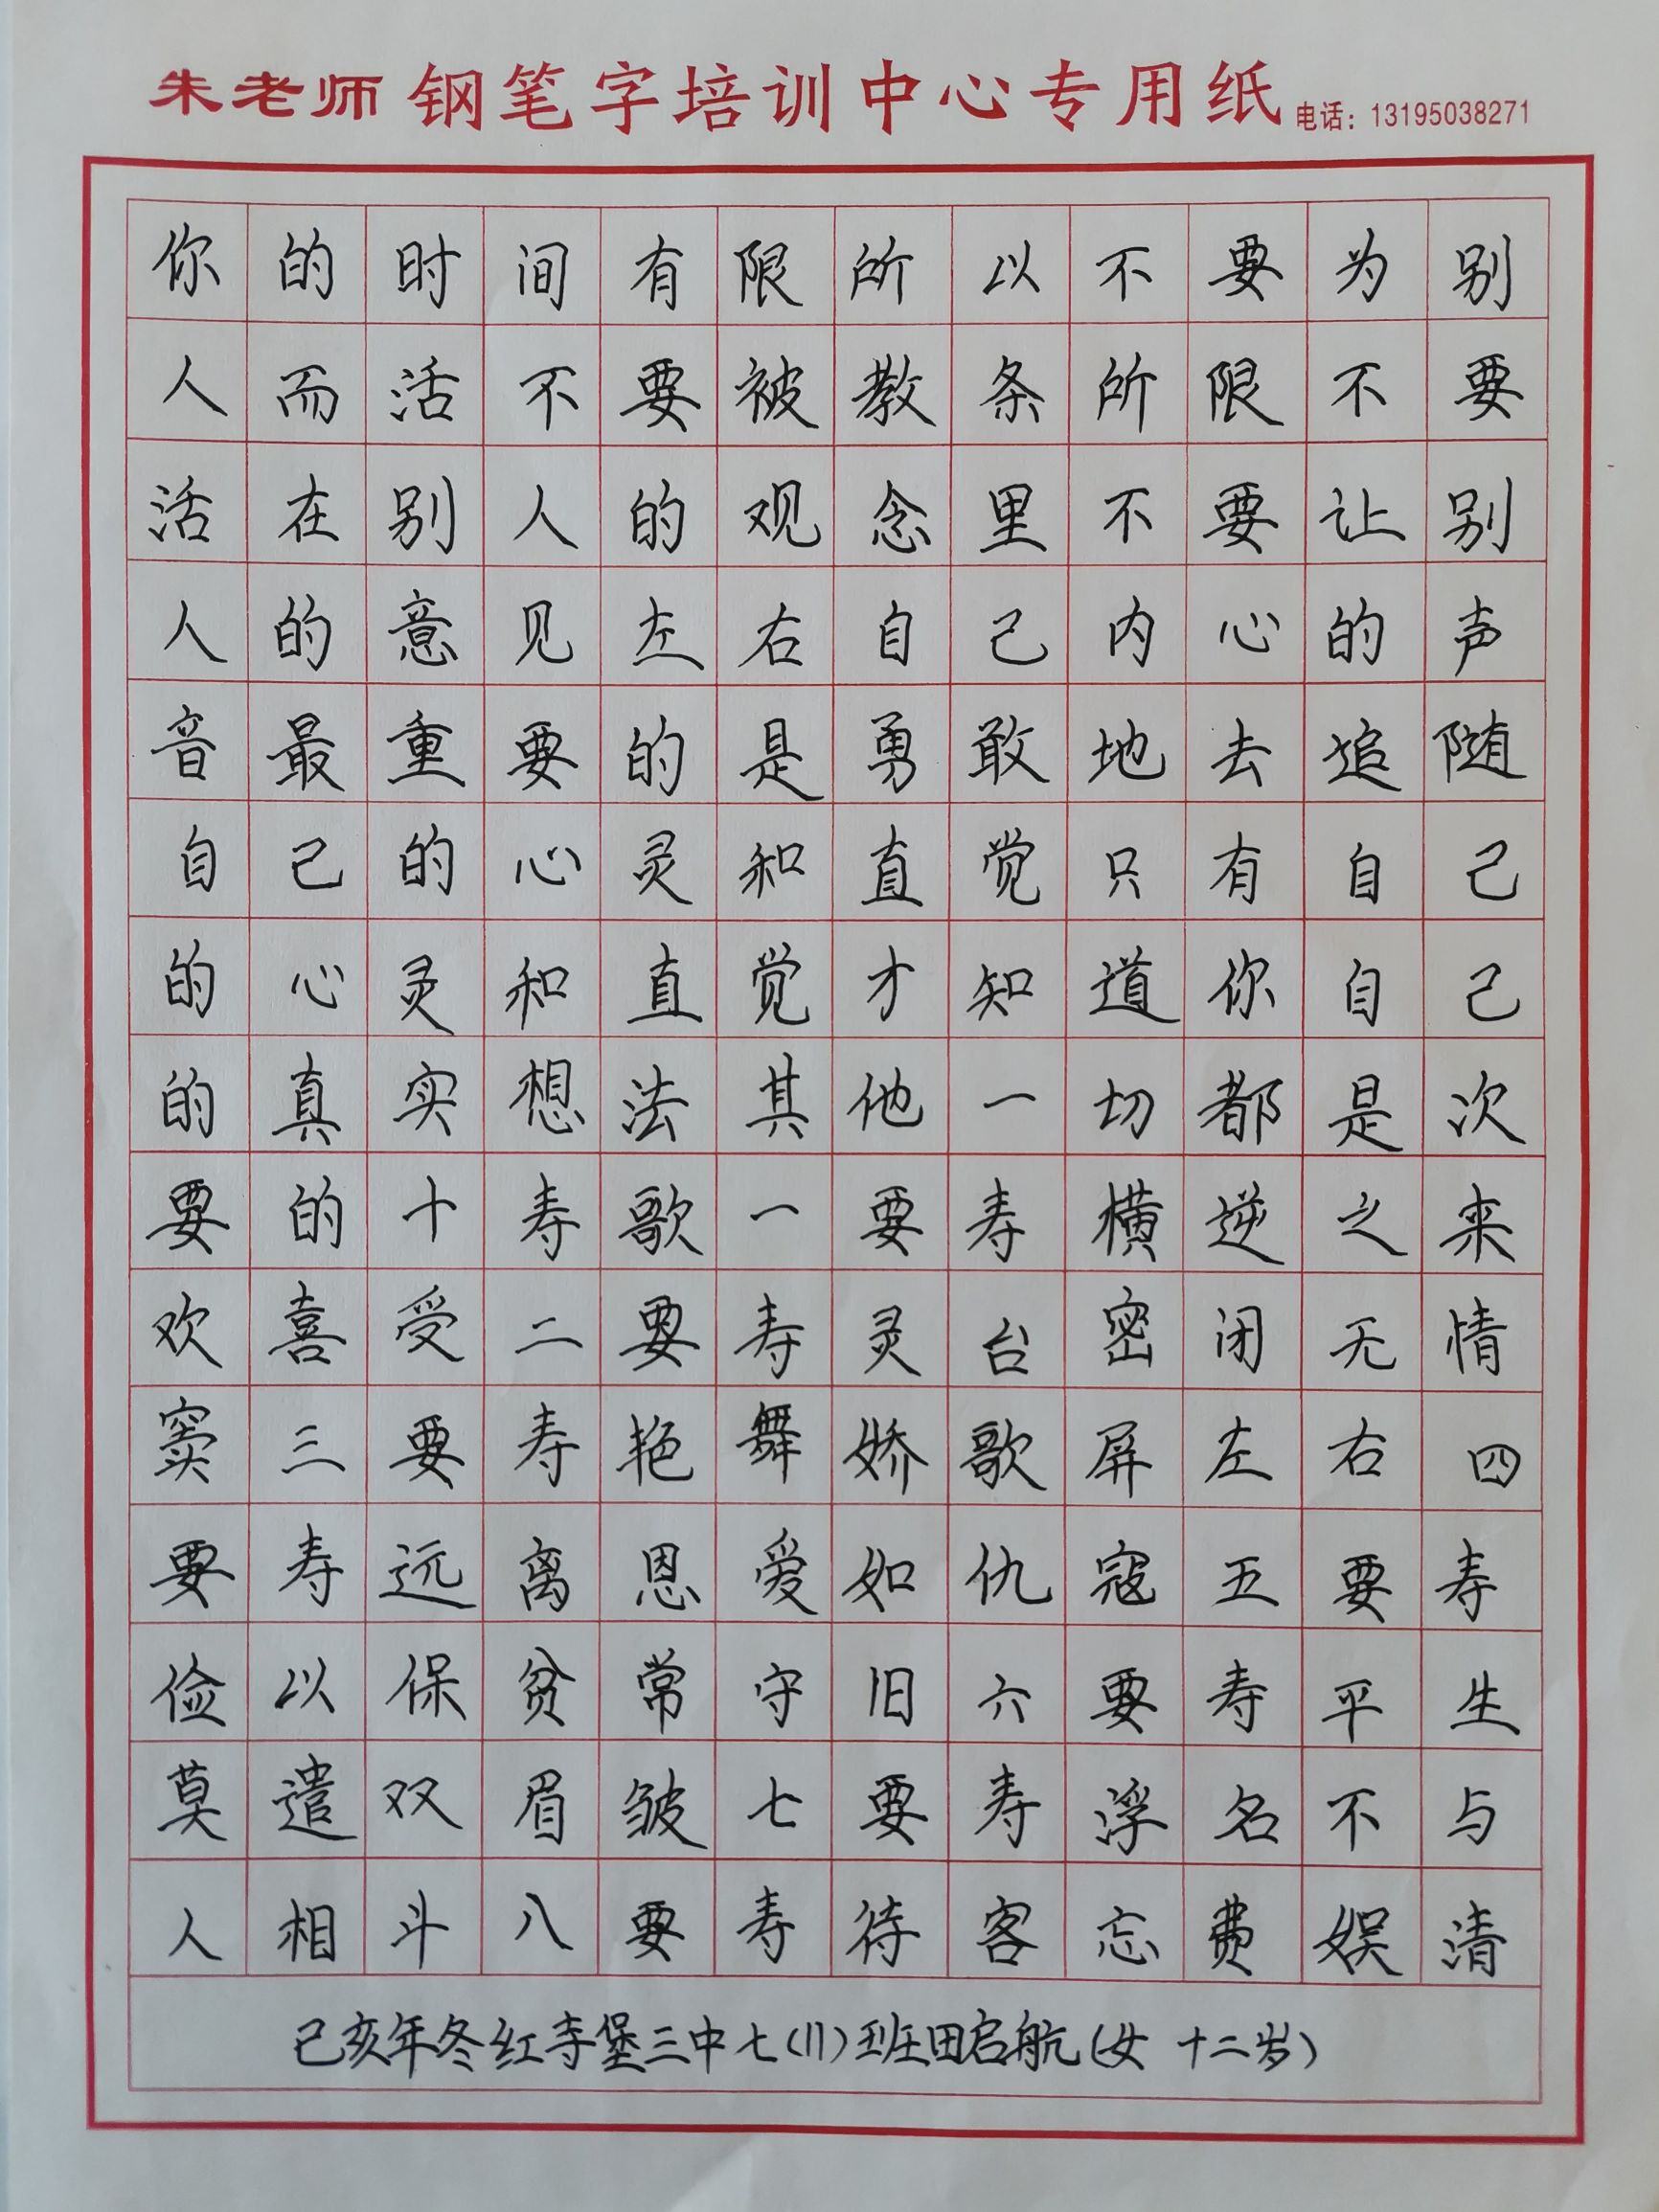 朱老师 钢笔字培训中心专用纸 电话：13195038271
你的时间有限所以不要为别
人而活不要被教条所限不要
活在别人的观念里不要让别
人的意见左右自己内心的声
音最重要的是勇敢地去追随
自己的心灵和直觉只有自己
的心灵和直觉才知道你自己
的真实想法其他一切都是次
要的十寿歌一要寿横逆之来
欢喜受二要寿灵台密闭无情
窦三要寿艳舞娇歌屏左右四
要寿远离恩爱如仇寇五要寿
俭以保贫常守旧六要寿平生
莫遣双眉皱七要寿浮名不与
人相斗八要寿待客忘费娱清
己亥年冬红寺堡三中七(11)班田启航(女 十二岁)